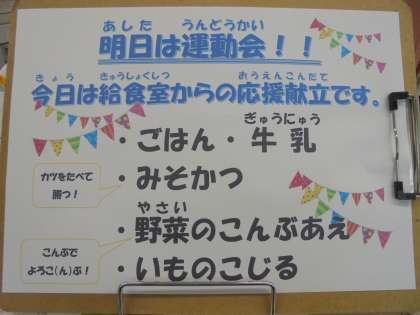 あした うんどうかい
明日は運動会！！
きょう きゅうしょくしつ おうえんこんだて
今日は給食室からの応援献立です。
ぎゅうにゅう
・ごはん・牛乳
・みそかつ
カツをたべて
勝つ！
やさい
・野菜のこんぶあえ
こんぶで
よろこ(ん)ぶ！
・いものこじる